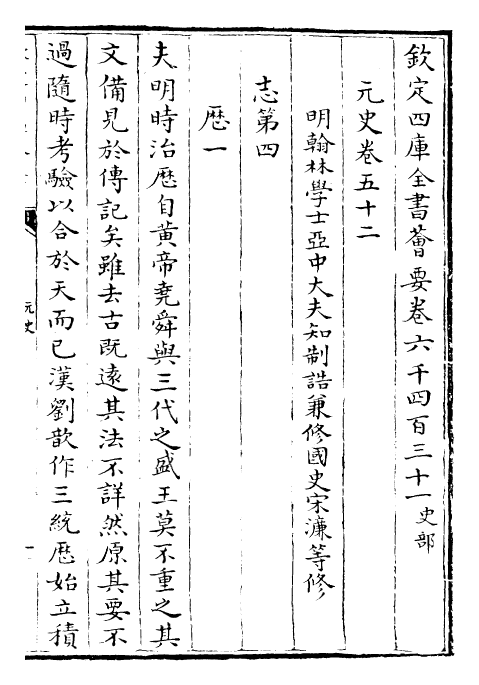 欽定四庫全書薈要卷六千四百三十一史部
元史卷五十二
明翰林學士亞中大夫知制誥兼修國史宋濂等修
志第四
厯一
夫明時治厯自黄帝堯舜與三代之盛王莫不重之其
文備見於傳記矣雖去古既逺其法不詳然原其要不
過隨時考驗以合於天而已漢劉歆作三統厯始立積
元史
一